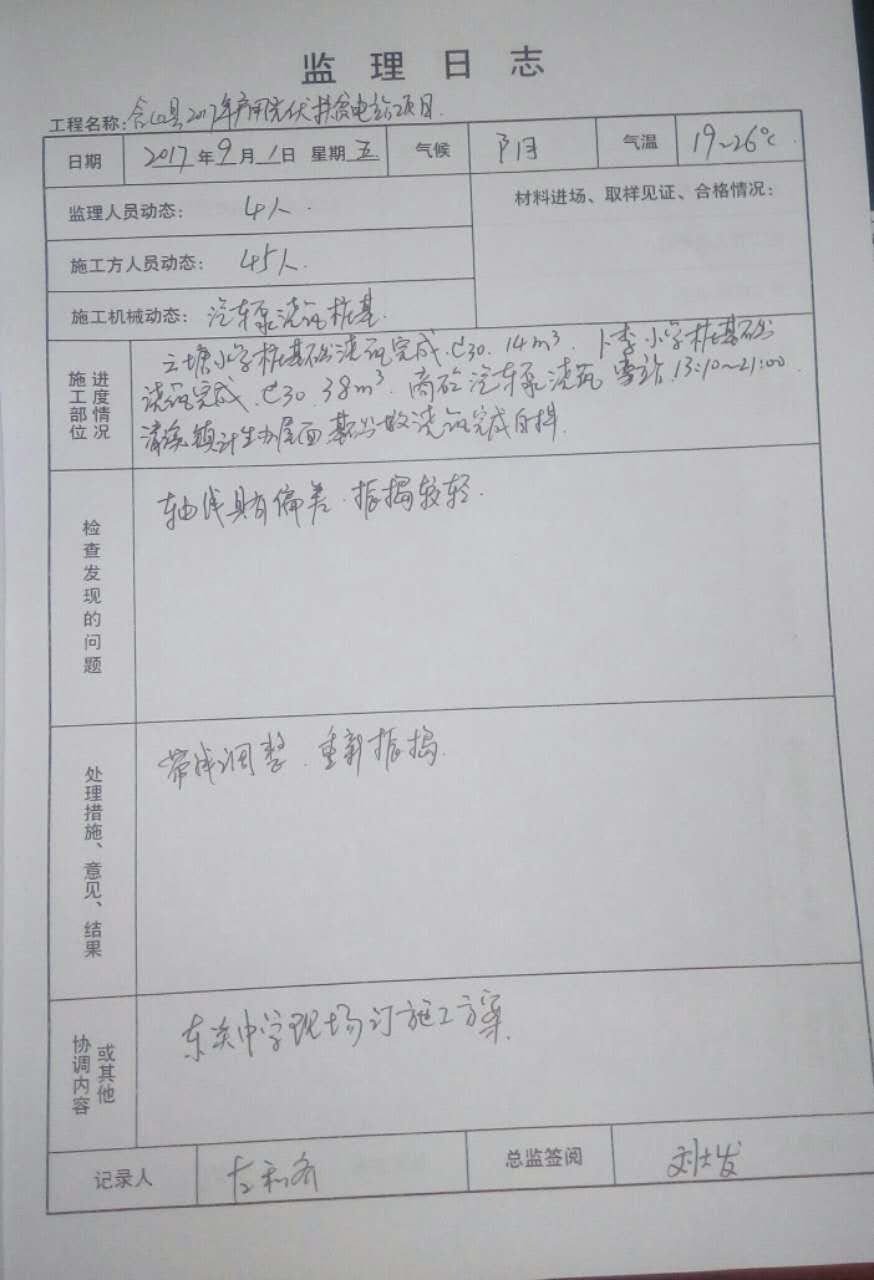 监理日志
工程名称：含山县2017年户用光伏扶贫电站项目
日期 2017年9月1日 星期五 气候 阴 气温 19~26℃
监理人员动态： 4人. 材料进场、取样见证、合格情况：
施工方人员动态： 45人.
施工机械动态： 汽车泵浇筑桩基.
施工部位进度情况
云塘小学桩基砼浇筑完成.C30.14m³. 卜李小学桩基砼
浇筑完成.C30.38m³.商砼汽车泵浇筑 13:10~21:00
清溪镇计生办屋面基浇筑完成自拌.
检查发现的问题
轴线有偏差.振捣较轻.
处理措施、意见、结果
带线调整.重新振捣.
协调内容或其他
东关中学现场订施工方案.
记录人 总监签阅